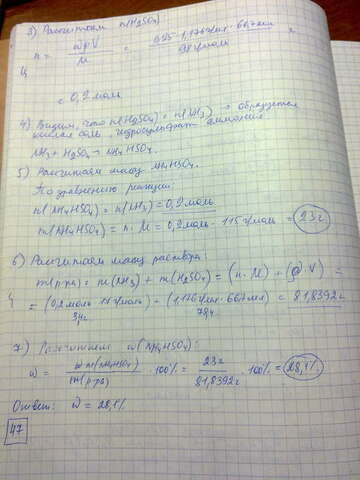 3) Рассчитаем n(H₂SO₄)
n = ωρV / M = 0,25 · 1,176 г/мл · 66,7 мл / 98 г/моль
= 0,2 моль
4) Видим, что n(H₂SO₄) = n(NH₃) → образуется
кислая соль - гидросульфат аммония.
NH₃ + H₂SO₄ → NH₄HSO₄.
5) Рассчитаем массу NH₄HSO₄.
По уравнению реакции:
n(NH₄HSO₄) = n(NH₃) = 0,2 моль
m(NH₄HSO₄) = n · M = 0,2 моль · 115 г/моль = 23 г
6) Рассчитаем массу раствора
m(р-ра) = m(NH₃) + m(H₂SO₄) = (n · M) + (ρ · V) =
= (0,2 моль · 17 г/моль) + (1,176 г/мл · 66,7 мл) = 81,8392 г
3,4 г 78,4
7) Рассчитаем ω(NH₄HSO₄):
ω = m(NH₄HSO₄) / m(р-ра) · 100% = 23 г / 81,8392 г · 100% = 28,1%
Ответ: ω = 28,1%
47